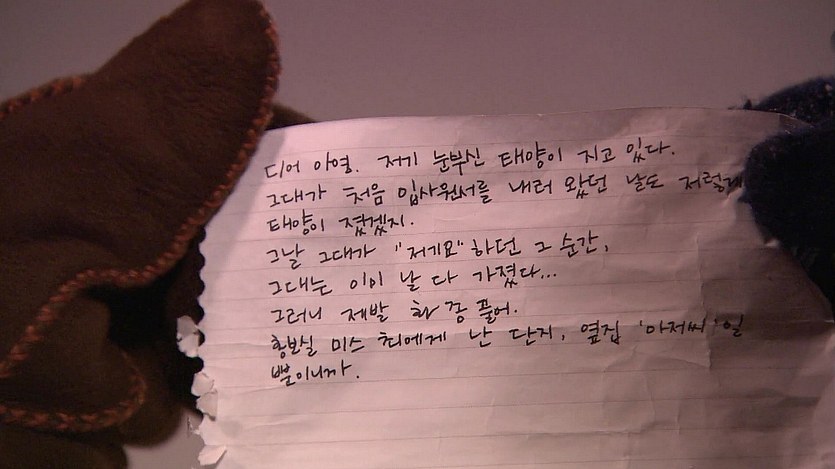 디어 아영. 저기 눈부신 태양이 지고 있다.
그대가 처음 입사원서를 내러 왔던 날도 저렇게
태양이 졌겠지.
그날 그대가 "저기요" 하던 그 순간,
그대는 이미 날 다 가졌다...
그러니 제발 화 좀 풀어.
홍보실 미스 최에게 난 단지, 옆집 '아저씨'일
뿐이니까.